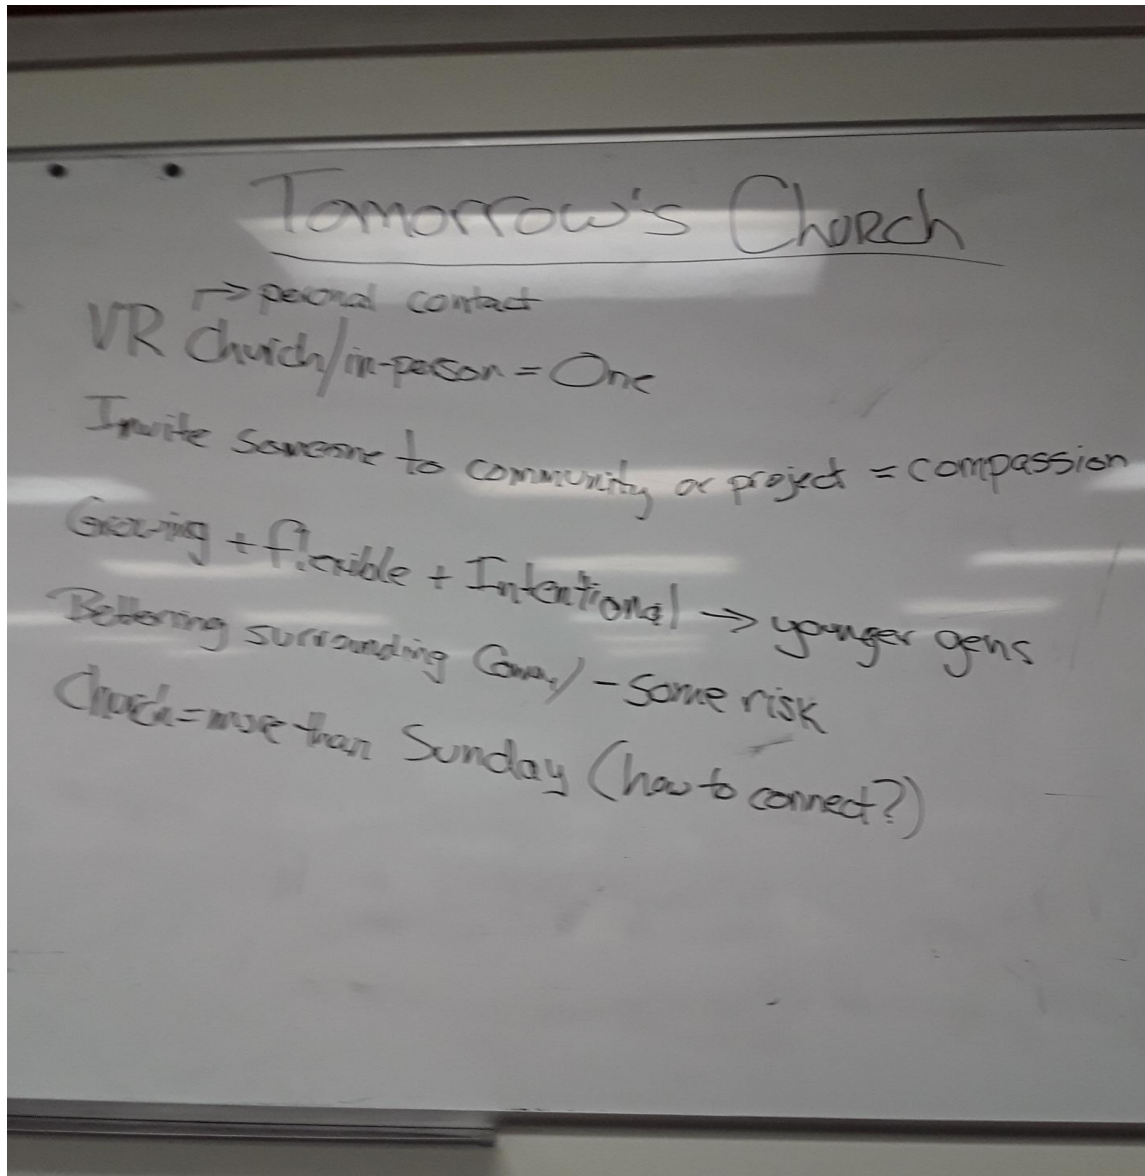 Tomorrow's Church
→ personal contact
VR Church/in-person = One
Invite someone to community or project = compassion
Growing + flexible + Intentional → younger gens
Bettering surrounding / - Some risk
Church = more than Sunday (how to connect?)